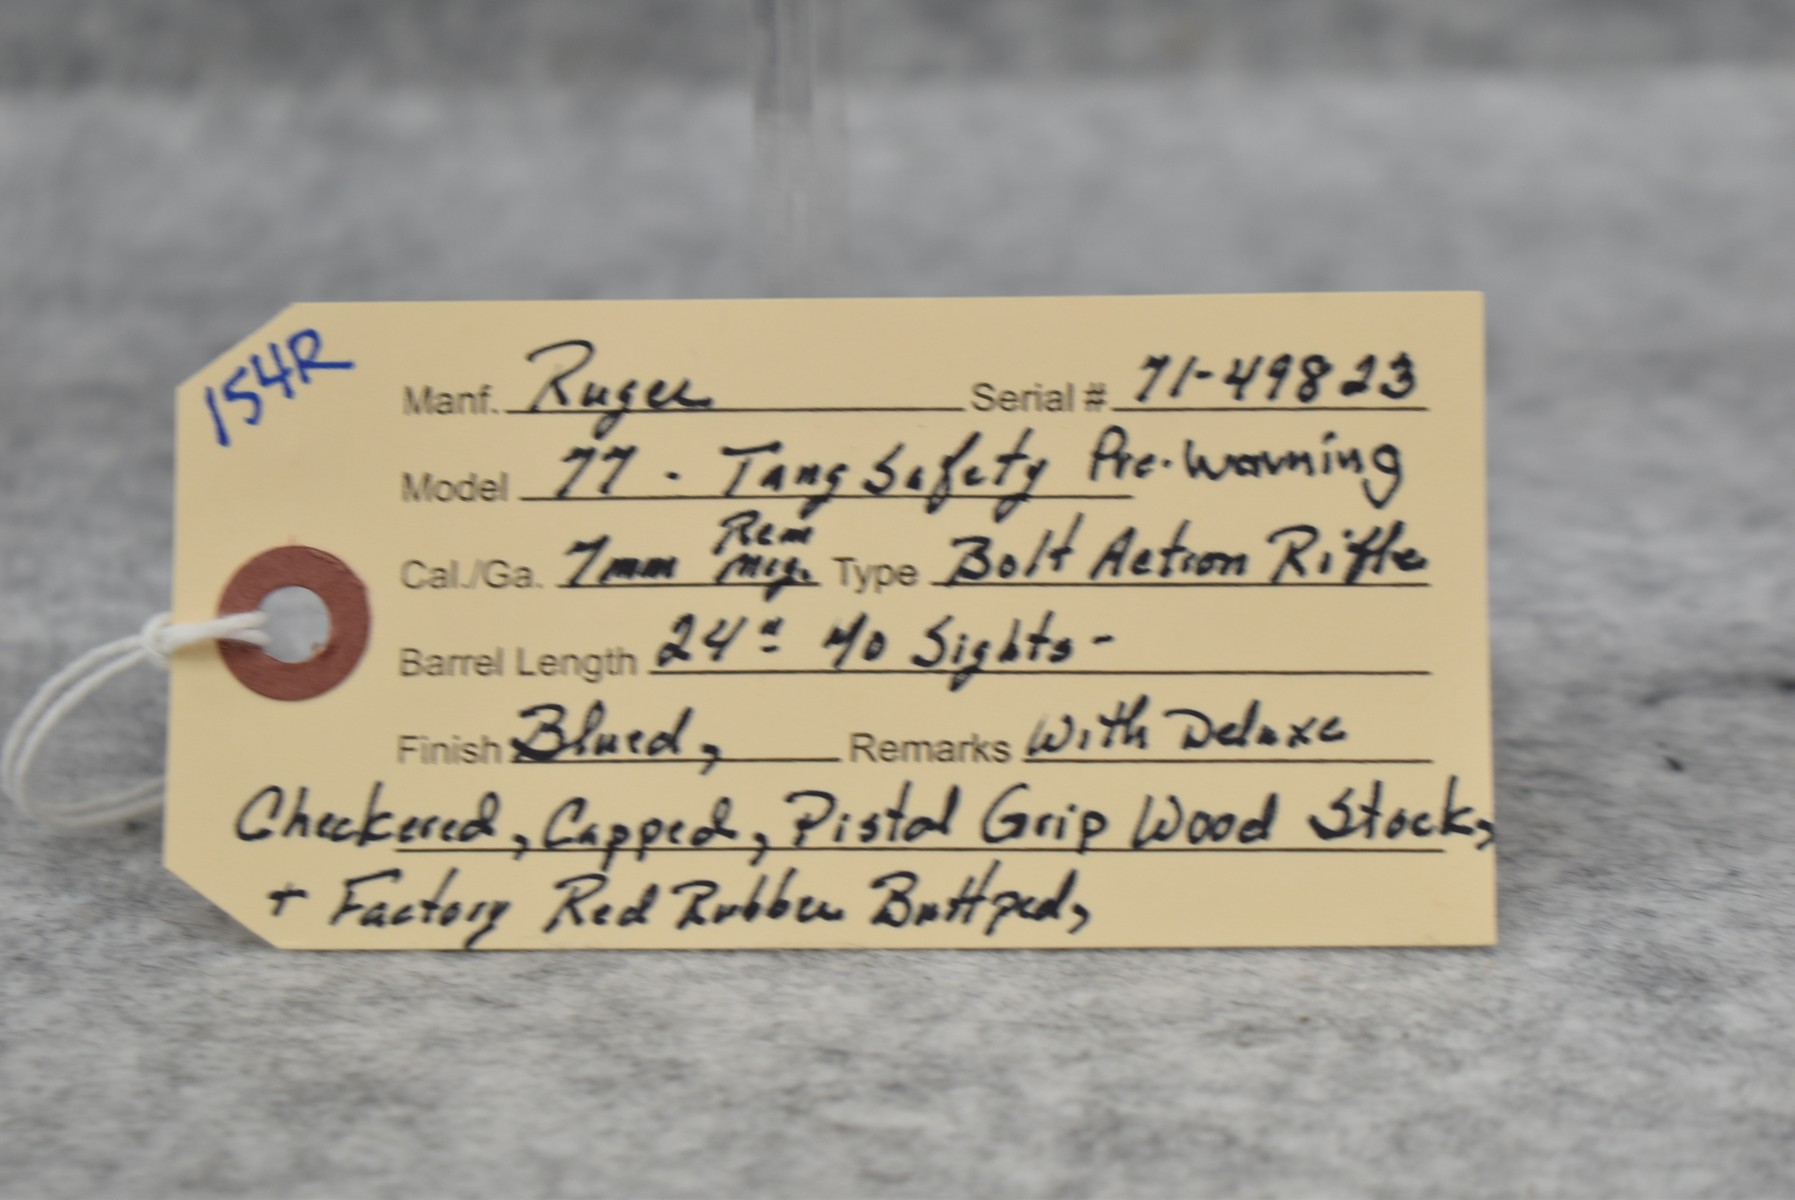 154R
Manf. Ruger Serial # 71-49823
Model 77 - Tang Safety Pre-Warning
Cal./Ga. 7mm Rem Mag. Type Bolt Action Rifle
Barrel Length 24" N/O Sights-
Finish Blued, Remarks With Deluxe
Checkered, Capped, Pistol Grip Wood Stock,
+ Factory Red Rubber Buttpad,